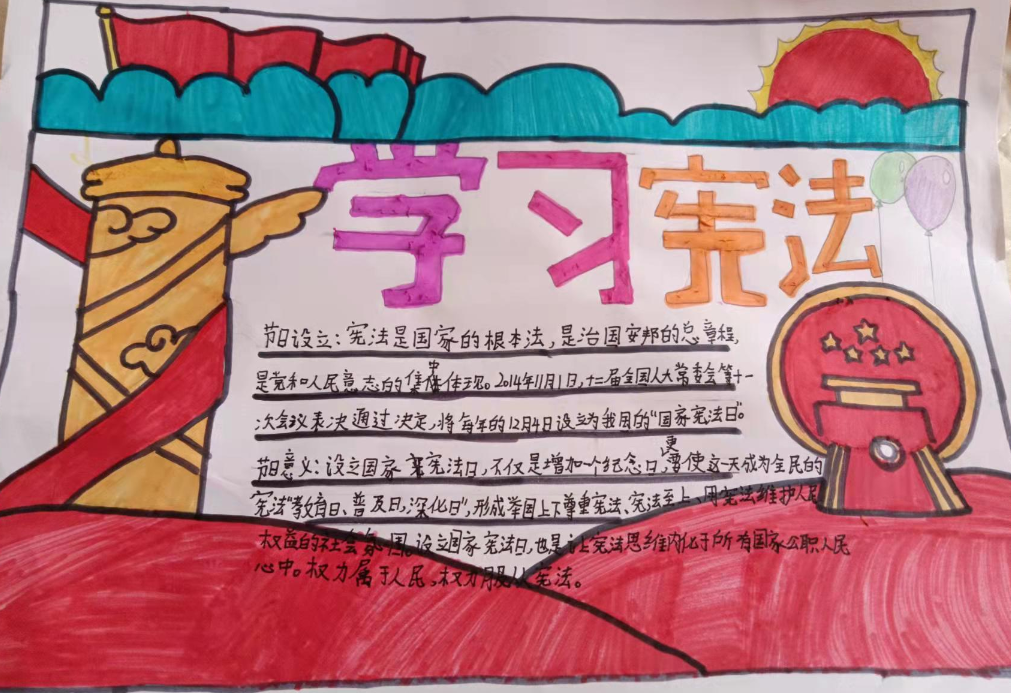 学习宪法
节日设立：宪法是国家的根本法，是治国安邦的总章程，
是党和人民意志的集中体现。2014年11月1日，十二届全国人大常委会第十一
次会议表决通过决定，将每年的12月4日设立为我用的“国家宪法日”。
节日意义：设立国家宪法日，不仅是增加一个纪念日，更要使这一天成为全民的
宪法“教育日、普及日、深化日”，形成举国上下尊重宪法、宪法至上、用宪法维护人民
权益的社会氛围。设立国家宪法日，也是让上宪法思维内化于所有国家公职人民
心中。权力属于人民，权力服从宪法。